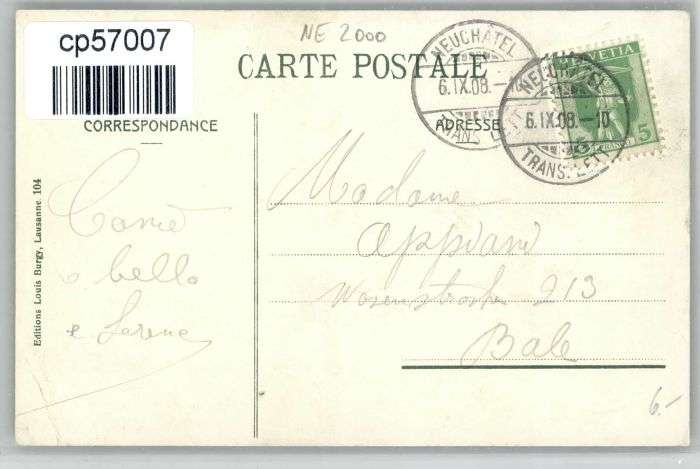 cp57007
NE 2000
CARTE POSTALE
CORRESPONDANCE
ADRESSE
NEUCHATEL
6.IX.08.–1
TRANS. LETT
NEUCHATEL
6.IX.08.–10
TRANS. LETT.
HELVETIA
5
Editions Louis Burgy, Lausanne 104
bella
e
Madame
Appiani
213
Bale
6.-